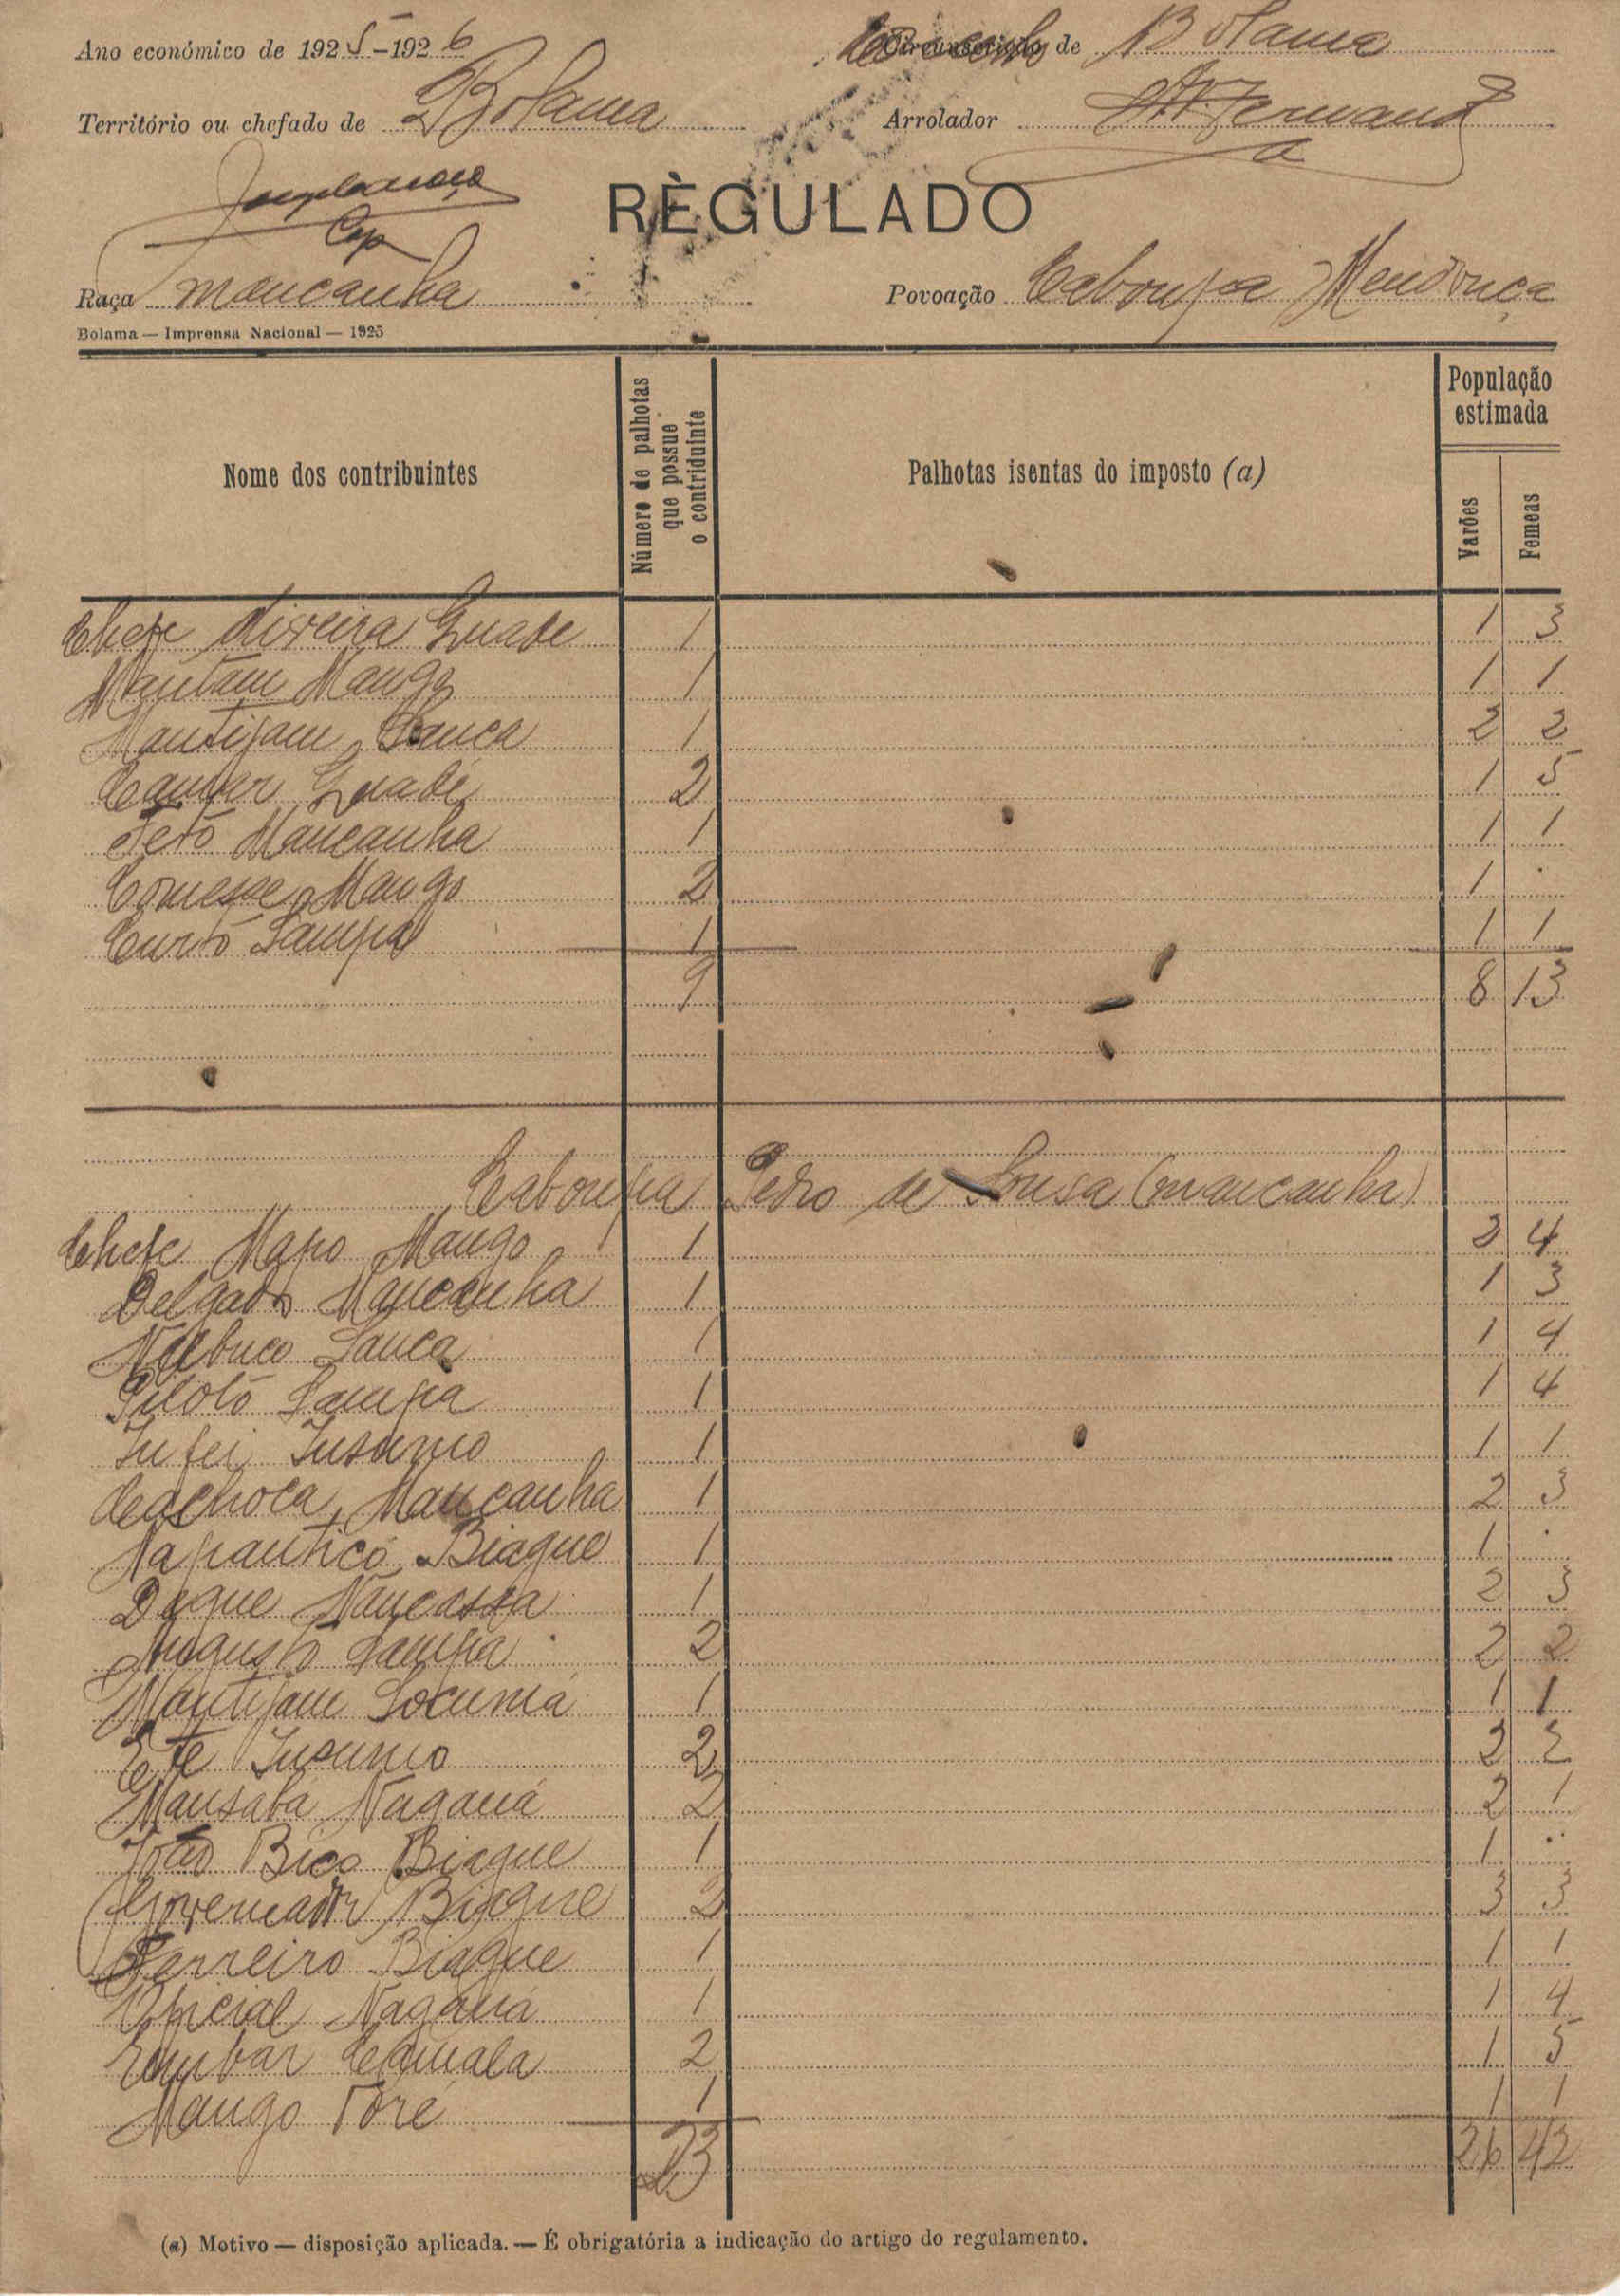 Ano económico de 1925-1926 Concelho de Bolama
Território ou chefado de Bolama Arrolador Fernand
RÈGULADO
Cap
Raça mancanha Povoação Caboupa Mendonça
Bolama — Imprensa Nacional — 1925
Nome dos contribuintes Número de palhotas que possue o contriduinte Palhotas isentas do imposto (a) População estimada Varões Femeas
Chefe Oliveira Guade 1 1 3
Mantam Mango 1 1 1
Mantijam 1 2 2
Guade 2 1 5
Tetó Mancanha 1 1 1
Comesse Mango 2 1 .
Curtó Sampa 1 1 1
9 8 13
Caboupa Pedro de Sousa (mancanha)
Chefe Mapo Mango 1 2 4
Delgado Mancanha 1 1 3
Nabuco Sanca 1 1 4
Pilotó Sampa 1 1 4
1 1 1
Cachoca Mancanha 1 2 3
Napanticó Biague 1 1 .
Duque Nancassa 1 2 3
Augusto Sampa 2 2 2
Mantijam Socumá 1 1 1
2 2 2
Mansabá Naganá 2 2 1
João Bico Biague 1 1 .
Governador Biague 2 3 3
Ferreiro Biague 1 1 1
Oficial Naganá 1 1 4
2 1 5
Mango Toré 1 1 1
23 26 42
(a) Motivo — disposição aplicada. — É obrigatória a indicação do artigo do regulamento.